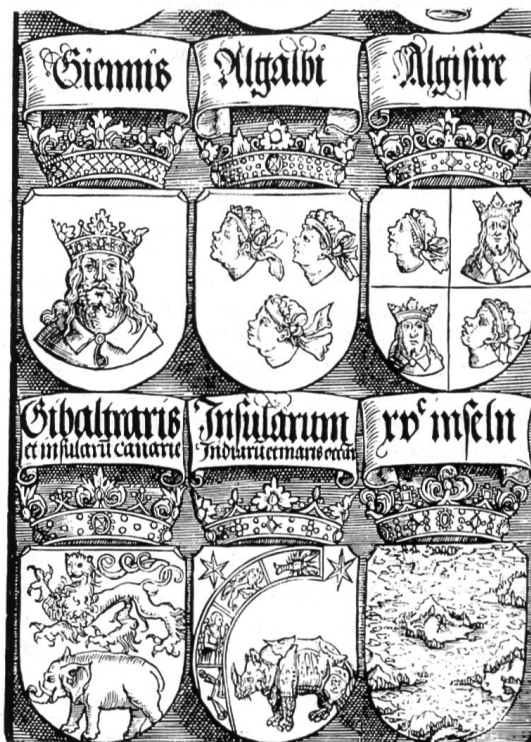 Giennis
Algalbi
Algisire
Gibaltraris
et insularū canarie
Insularum
Indiarū et maris
xvᶜ inseln